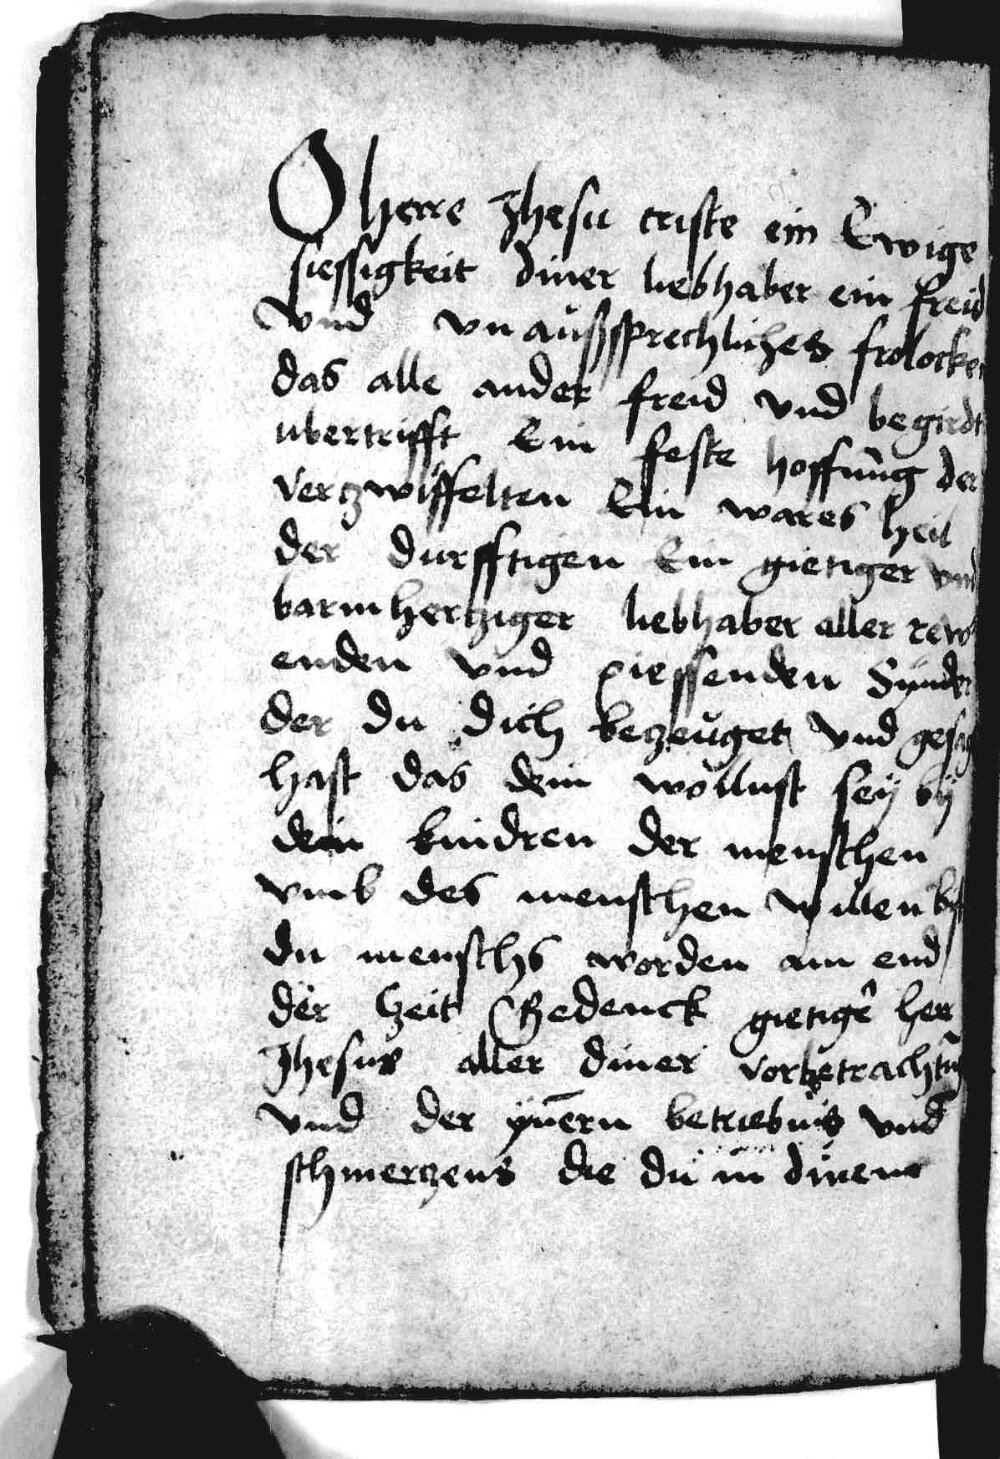 O herre Jhesu criste ein Ewige
siessigkeit diner liebhaber ein freid
vnd vnaußsprechliches frolocken
das alle ander freid vnd begirdt
ubertrifft Ein feste hoffnŭng der
vertzwiffelten Ein wares heil
der durfftigen Ein gietiger vnd
barmhertziger liebhaber aller rew
enden vnd Sünder
der du dich bezeŭget vnd
hast das dein wollust seÿ bÿ
dein kindren der menschen
vmb des menschen willen
du menschs worden am end
der Zeit Gedenck gietigē her
Jhesus aller diner vorbetrachtū
vnd der yn̄ern betriebnis vnd
schmerzens die dŭ in dinem